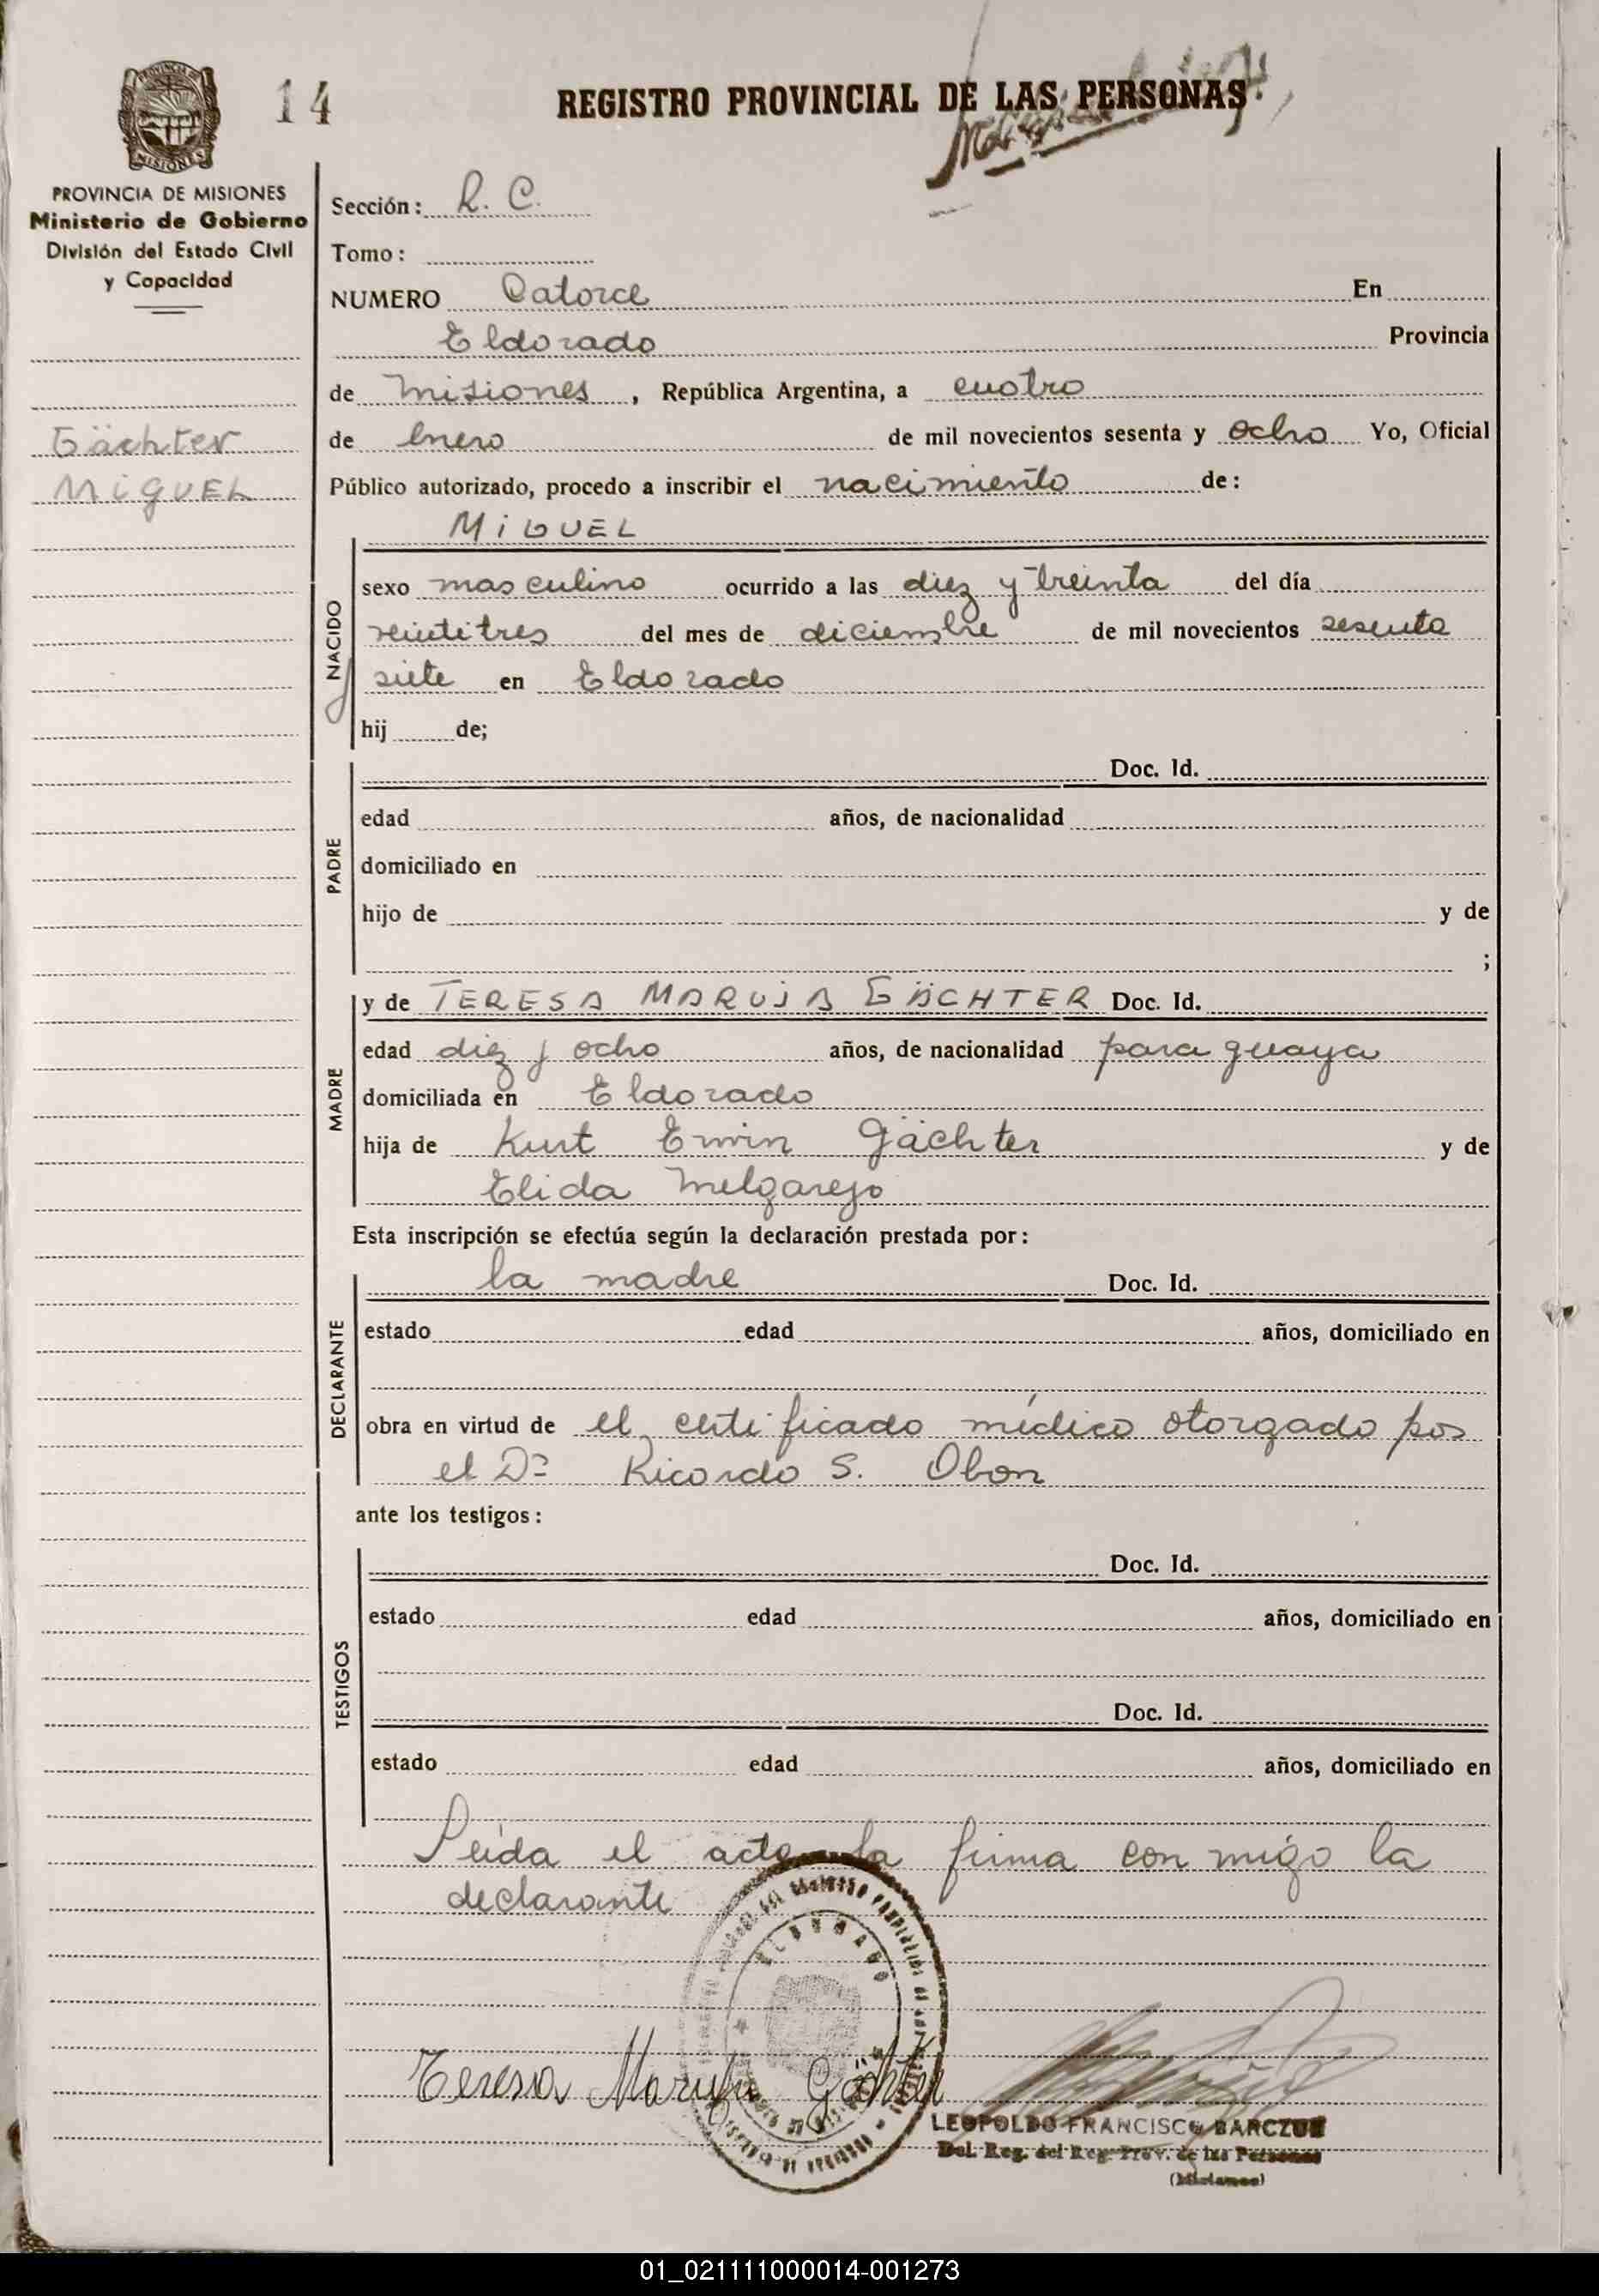 14
REGISTRO PROVINCIAL DE LAS PERSONAS
MISIONES
PROVINCIA DE MISIONES
Ministerio de Gobierno
División del Estado Civil
y Capacidad
Gächter
MiGUEL
Sección: R. C.
Tomo:
NUMERO Catorce En
Eldorado Provincia
de Misiones, República Argentina, a cuatro
de Enero de mil novecientos sesenta y ocho Yo, Oficial
Público autorizado, procedo a inscribir el nacimiento de:
MiGUEL
NACIDO
sexo masculino ocurrido a las diez y treinta del día
veintitres del mes de diciembre de mil novecientos sesenta
y siete en Eldorado
hij de;
PADRE
Doc. Id.
edad años, de nacionalidad
domiciliado en
hijo de y de
;
MADRE
y de TERESA MARUJA GÄCHTER Doc. Id.
edad diez y ocho años, de nacionalidad paraguaya
domiciliada en Eldorado
hija de Kurt Erwin Gächter y de
Elida Melgarejo
Esta inscripción se efectúa según la declaración prestada por:
DECLARANTE
la madre Doc. Id.
estado edad años, domiciliado en
obra en virtud de el certificado médico otorgado por
el Dr Ricardo S. Obon
ante los testigos:
TESTIGOS
Doc. Id.
estado edad años, domiciliado en
Doc. Id.
estado edad años, domiciliado en
Leída el acta la firma conmigo la
declarante
ELDORADO
Teresa Maruja Gächter
LEOPOLDO FRANCISCO BARCZUK
Del. Reg. del Reg. Prov. de las Personas
(Misiones)
01_021111000014-001273